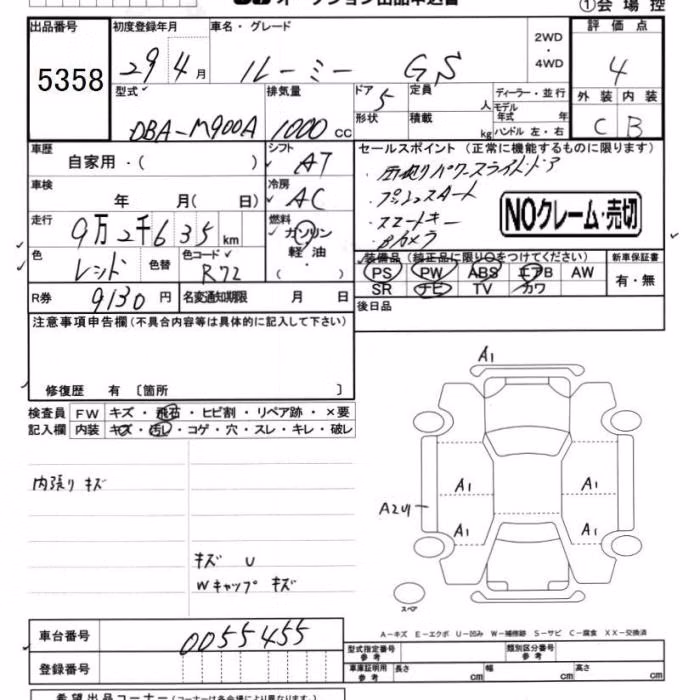 オークション出品申込書
①会場控
出品番号 初度登録年月 車名・グレード 2WD・4WD 評価点
5358 29年4月 ルーミー GS 4
型式 排気量 ドア 5 定員 人 ディーラー・並行 外装 内装
DBA-M900A 1000cc 形状 積載 kg モデル年式 年 ハンドル 左・右 C B
車歴 シフト セールスポイント (正常に機能するものに限ります)
自家用・( ) AT 両側パワースライドドア
車検 冷房 プッシュスタート
年 月( 日) AC スマートキー
走行 燃料 Bカメラ
9万2千635km ガソリン NOクレーム・売切
軽油・( )
色 レッド 色替 色コード R72
装備品 (純正品に限り○をつけてください) 新車保証書
PS PW ABS エアB AW 有・無
SR ナビ TV カワ
R券 9130円 名変通知期限 月 日 後日品
注意事項申告欄(不具合内容等は具体的に記入して下さい)
修復歴 有 〔箇所 〕
検査員 FW キズ・飛石・ヒビ割・リペア跡・×要
記入欄 内装 キズ・汚レ・コゲ・穴・スレ・キレ・破レ
内張り キズ
キズ U
Wキャップ キズ
A1
A1 A1
A2U1
A1 A1
スペア
A-キズ E-エクボ U-凹み W-補修跡 S-サビ C-腐食 XX-交換済
車台番号 0055455
登録番号
型式指定番号 参考 類別区分番号 参考
車庫証明用 参考 長さ cm 幅 cm 高さ cm
希望出品コーナー (コーナーは各会場により異なります。)